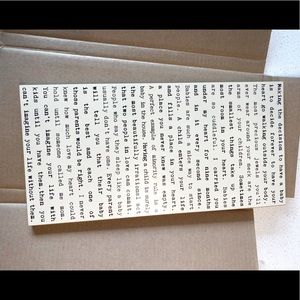 Making the decision to have a baby
is to decide forever to have your
heart go walking outside your body.
The most precious jewels you'll
ever wear around your neck are the
arms of your children. Sometimes
the smallest things take up the
most room in your heart. Babies
are so I carried you
under my heart for nine months
and in it every second since.
Babies are such a nice way to start
people. A child enters your life
and fills a place in your heart
a place you never knew was empty.
A perfect example of minority rule is a
baby in the house. Having a child is surely
the most beautifully irrational act
that two people in love can commit
People who say they sleep like a baby
usually don't have one. Every parent
will tell you that their baby
is the best and each one of
those parents would be right. I never
knew how much love my heart could
hold until someone called me mom.
You can't imagine your life with
kids until you have them. then you
can't imagine your life without them.